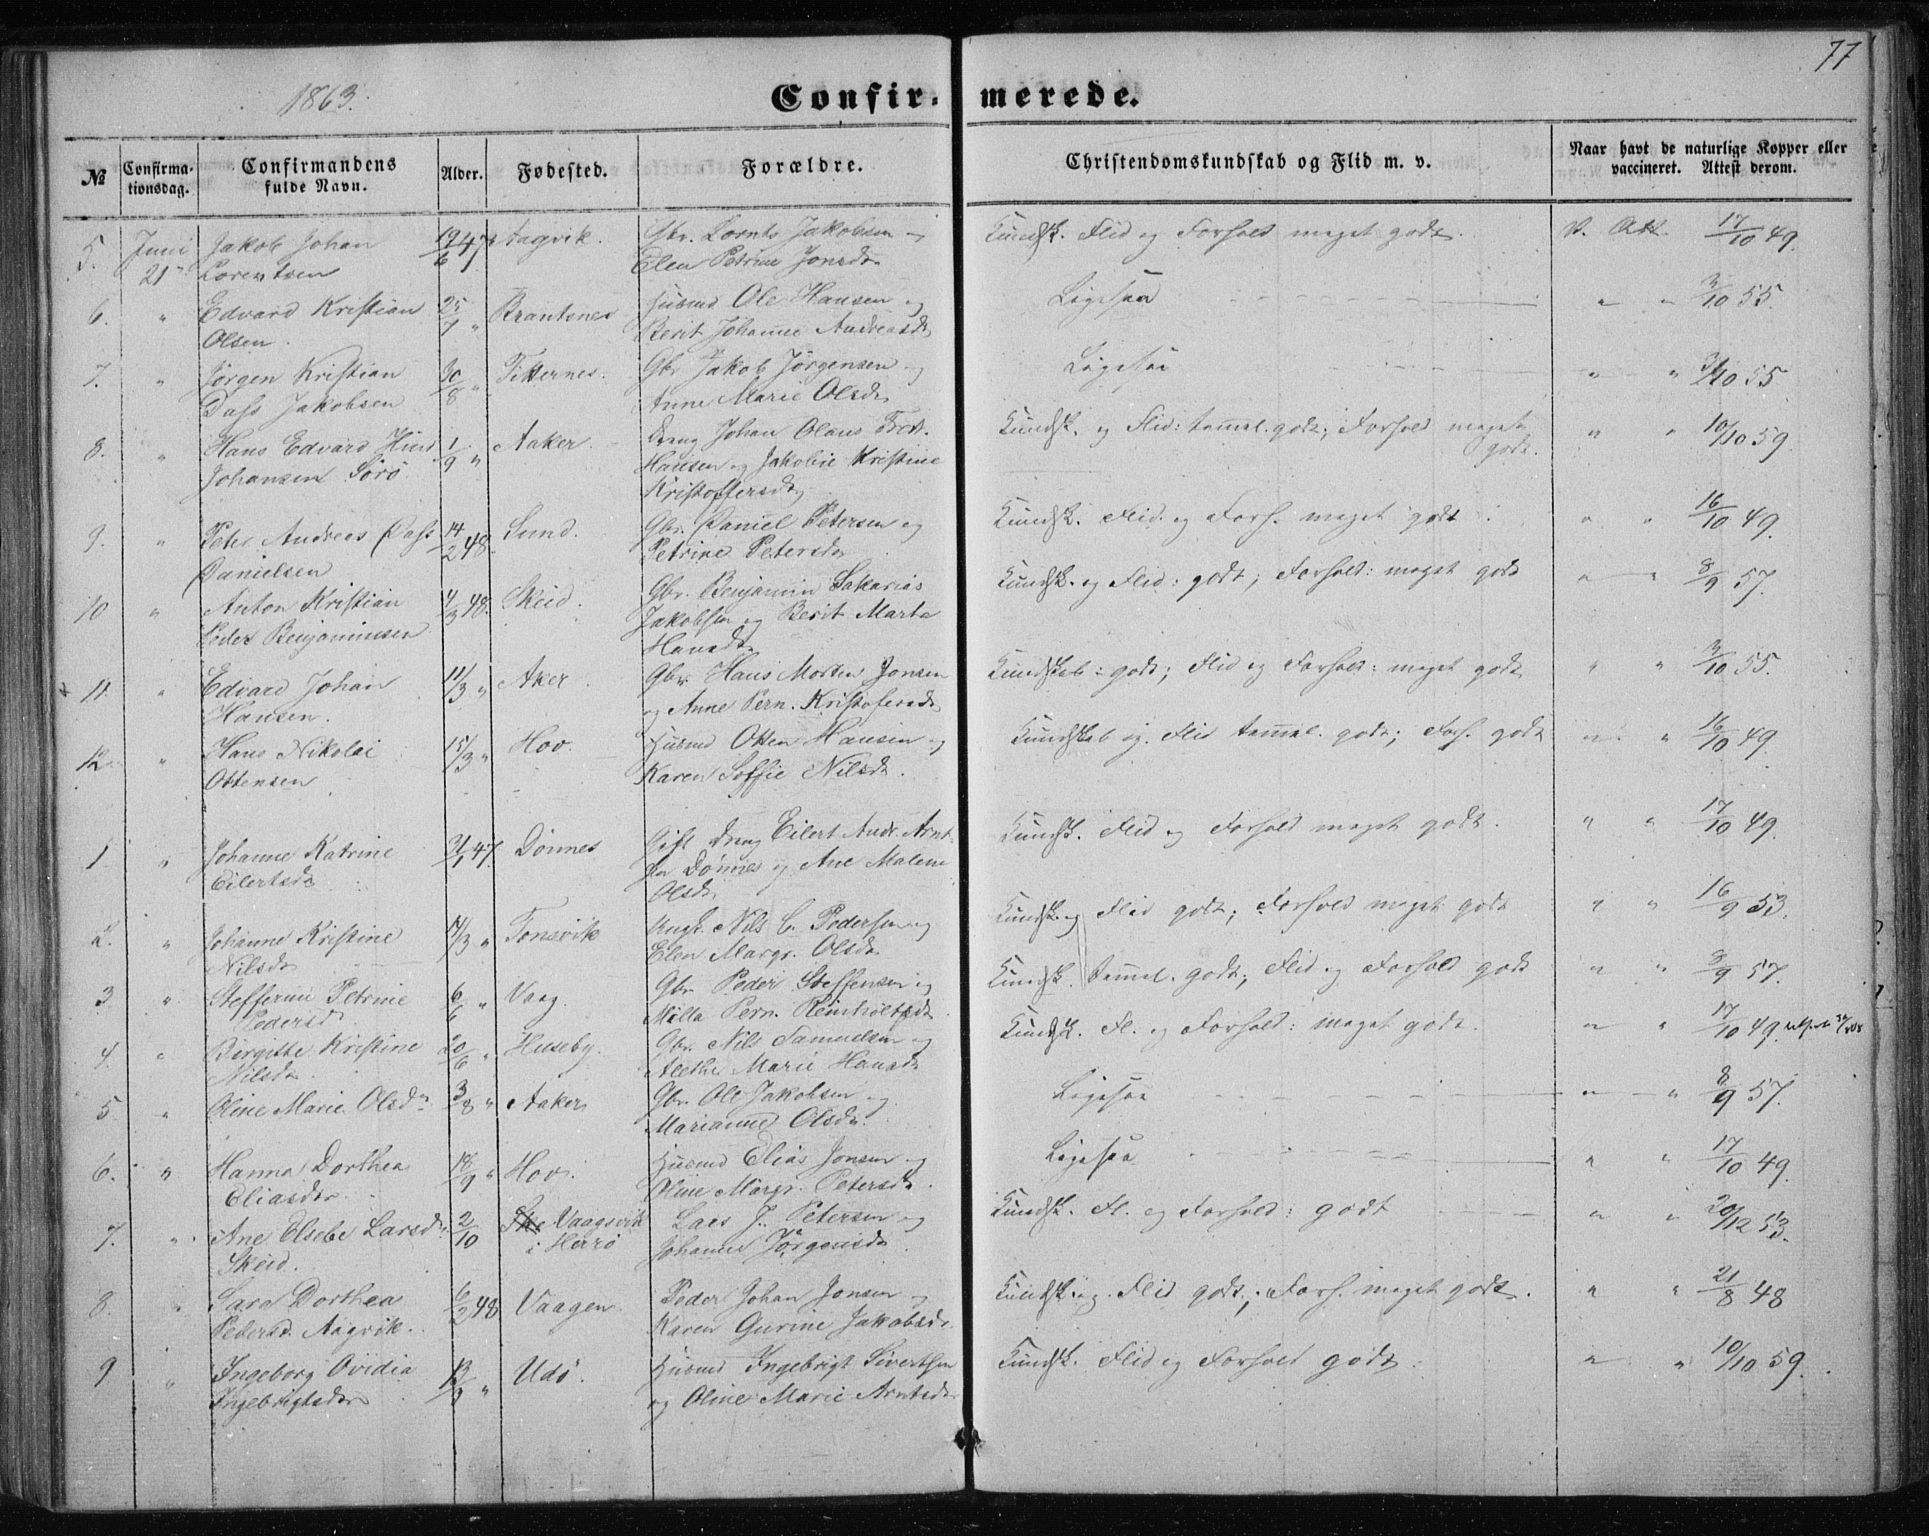 77
1863.
Confirmerede.
№ Confirmationsdag. Confirmandens fulde Navn. Alder. Fødested. Forældre. Christendomskundskab og Flid m. v. Naar havt de naturlige Kopper eller vaccineret. Attest derom.
5. Juni Jakob Johan 19/6 47 Aagvik. Gbr. Lornts Jakobsen og Kundsk. Flid og Forhold meget godt. V. Att. 17/10 49.
21 Lorentsen Elen Petrine Jonsdr
6. " Edvard Kristian 25/7 " Brantsnes Husmd Ole Hansen og Ligesaa " " 3/10 55.
Olsen. Berit Johanne Andreasdr
7. " Jørgen Kristian 30/8 " Titternes. Gbr Jakob Jørgensen og Ligesaa " " 3/10 55
Dass Jakobsen Anne Marie Olsdr
8. " Hans Edvard Hind 1/9 " Aaker. Dreng Johan Olaus Fredr. Kundsk. og Flid: tammel. godt; Forhold meget " " 10/10 59.
Johansen Sørø. Hansen og Jakobie Kristine godt.
Kristoffersdr
9. " Peter Andreas Dass 14/2 48. Sund. Gbr. Daniel Petersen og Kundsk. Flid. og Forh. meget godt. " " 16/10 49.
Danielsen Petrine Petersdr
10 " Anton Kristian 4/3 48. Skeid. Gbr. Benjamin Sakarias Kundsk. og Flid: godt; Forhold: meget godt " " 8/9 57.
Peder Benjaminsen Jakobsen og Berit Marta
Hansdr
11. " Edvard Johan 11/3 " Aker Gbr. Hans Morten Jonsen Kundskab: godt; Flid og Forhold: meget godt " " 3/10 55.
Hansen. og Anne Pern. Kristofersdr
12. " Hans Nikolai 15/3 " Hov. Husmd Otten Hansen og Kundskab og Flid tammel. godt; Forh. godt " " 16/10 49.
Ottensen Karen Soffie Nilsdr.
1. " Johanne Katrine 21/1 47. Dønnes Gift Dreng Eilert Andr. Arnt- Kundsk. Flid og Forhold meget godt. " " 17/10 49.
Eilertsdr sen Dønnes og Ane Malene
Olsdr
2. " Johanne Kristine 14/3 " Tonsvik Ungk. Nils C. Pedersen og Kundsk. og Flid godt; Forhold meget godt " " 16/9 53.
Nilsdr Elen Margr. Olsdr
3 " Stefferine Petrine 6/6 " Vaag. Gbr Peder Steffensen og Kundsk. tammel. godt; Flid og Forhold godt " " 8/9 57.
Pedersdr Milla Pern. Reinholtsdr
4. " Birgitte Kristine 20/6 " Huseby. Gbr. Nils Samuelsen og Kundsk. Fl. og Forhold: meget godt. " " 17/10 49.
Nilsdr Alethe Marie Hansdr
5. " Oline Marie Olsdr 3/8 " Aaker Gbr. Ole Jakobsen og Ligesaa " " 8/9 57.
Marianne Olsdr.
6. " Hanna Dorthea 18/9 " Hov. Husmd Elias Jonsen og Ligesaa " " 17/10 49.
Eliasdr Oline Margr. Petersdr
7. " Ane Elsebe Larsdr 2/10 Vaagsvik Lars J. Petersen og Kundsk. Fl. og Forhold: godt " " 20/12 53.
Skeid. i Herrø Johanne Jørgensdr.
8. " Sara Dorthea 6/2 48 Vaagen. Peder Johan Jonsen og Kundsk. og. Flid godt; Forh. meget godt. " " 21/8 48
Pedersd. Aagvik. Karen Gurine Jakobsdr.
9 " Ingeborg Ovidia 13/3 " Udø. Husmd Ingebrigt Sivertsen Kundsk. Flid og Forhold godt. " " 10/10 59.
Ingebrigtsdr og Oline Marie Arntsdr